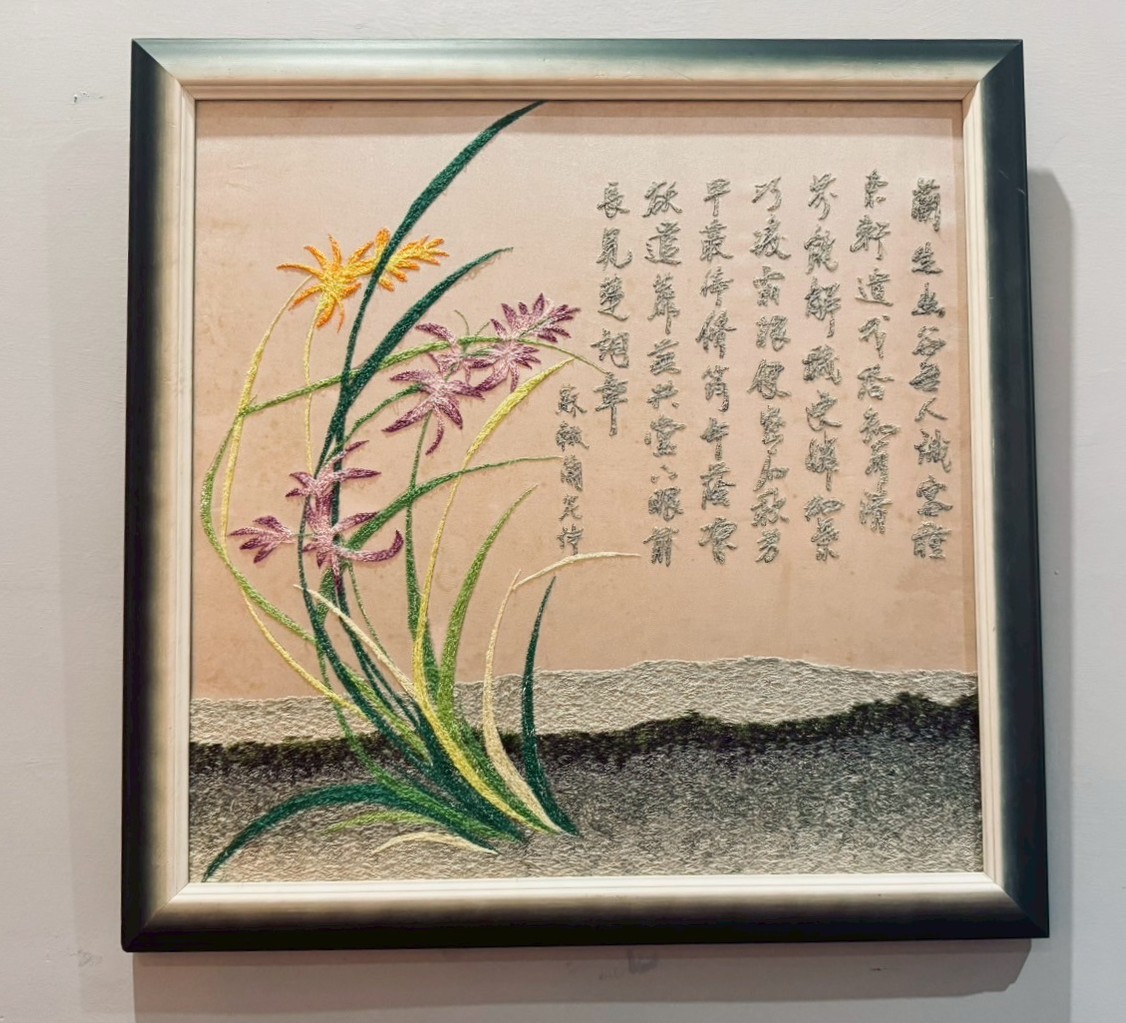 蘭生幽谷無人識客種
東軒遺我香知有清
芬能解穢更憐細葉
巧凌霜根便密石秋芳
早叢倚修筠午蔭涼
欲遣蘼蕪共堂下眼前
長見楚詞章
蘇轍蘭花詩